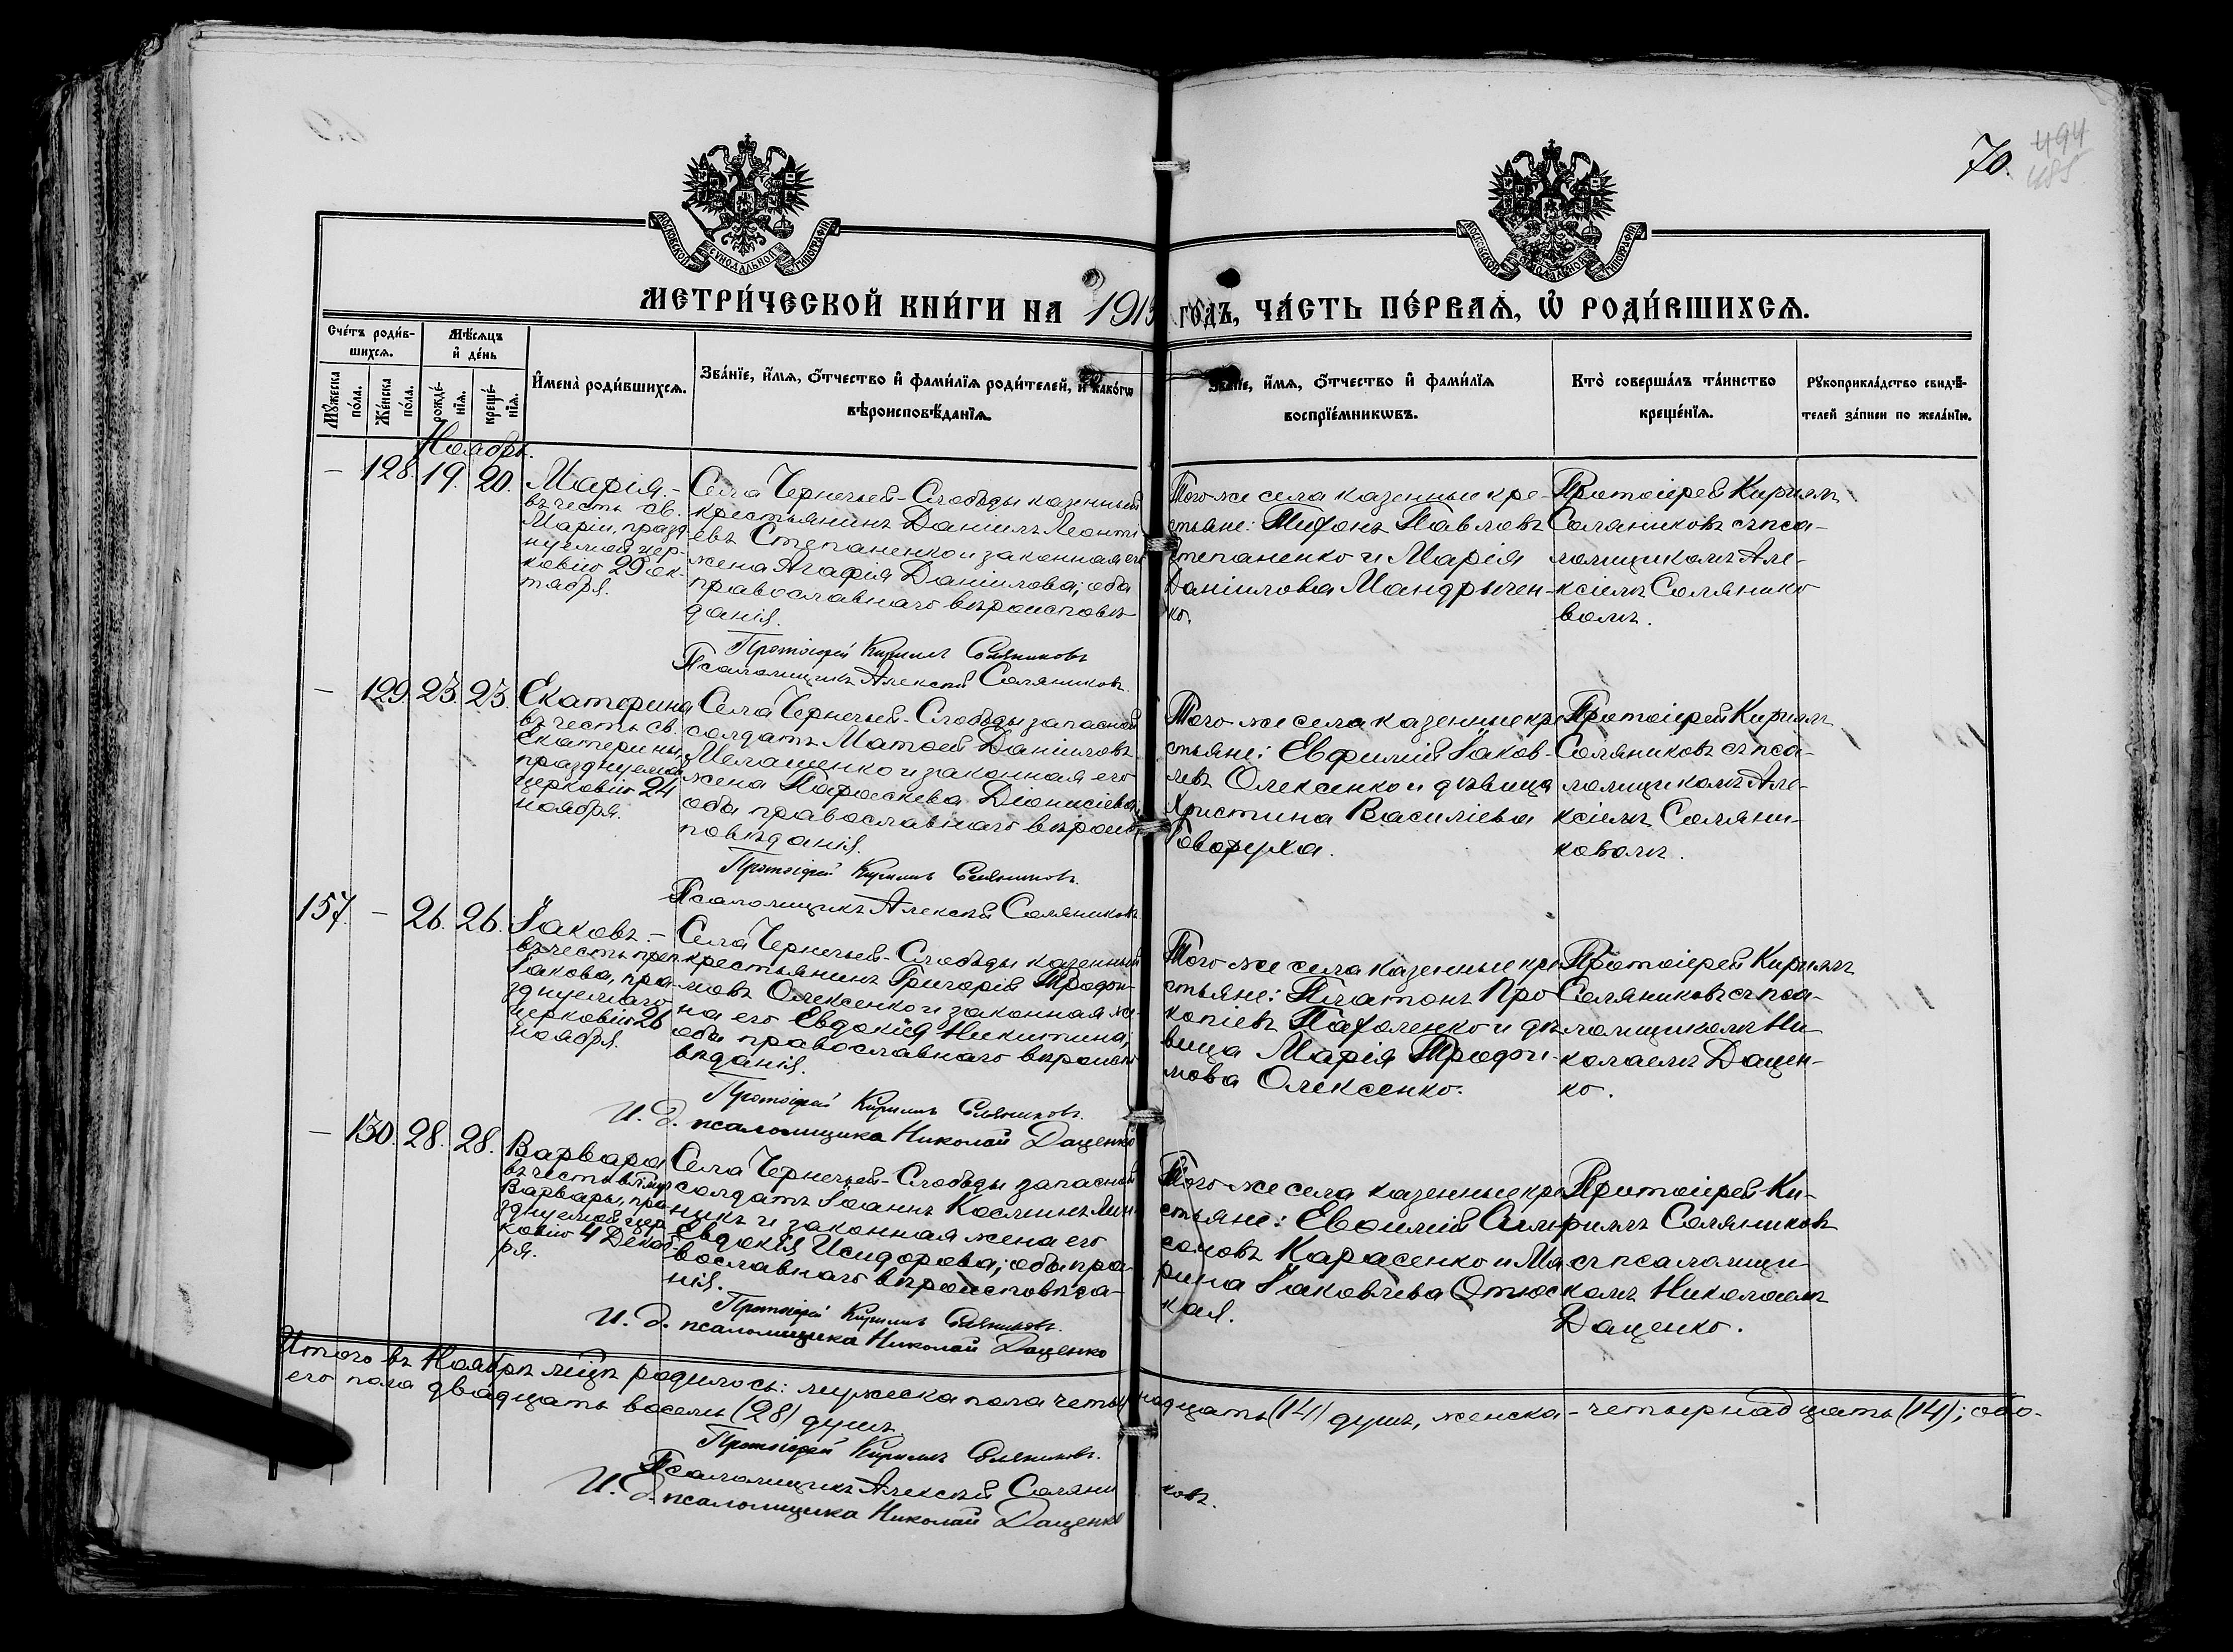 70.
494
485
МОСКОВСКОЙ СѴНОДАЛЬНОЙ ТИПОГРАФІИ
МОСКОВСКОЙ СѴНОДАЛЬНОЙ ТИПОГРАФІИ
МЕТРИ́ЧЕСКОЙ КНИ́ГИ НА 1913 ГО́ДЪ, ЧА́СТЬ ПЕ́РВАѦ, Ѽ РОДИ́ВШИХСѦ.
Сче́тъ роди́в-
шихсѧ.
Мꙋ́жеска
по́ла.
Же́нска
по́ла.
Мѣ́сѧцъ
и҆ де́нь
рожде́-
нїѧ.
креще́-
нїѧ.
И҆мена̀ роди́вшихсѧ.
Зва́нїе, и҆́мѧ, ѻ҆́тчество и҆ фами́лїѧ роди́телей, и҆ како́гѡ
вѣроисповѣ́данїѧ.
Зва́нїе, и҆́мѧ, ѻ҆́тчество и҆ фами́лїѧ
воспрїе́мникѡвъ.
Кто̀ соверша́лъ та́инство
креще́нїѧ.
Рꙋкоприкла́дство свидѣ́-
телей за́писи по жела́нїю.
Ноябрь.
— 128. 19. 20.
Марія. –
въ честь св.
Маріи, празд
нуемой цер-
ковію 29 ок-
тября.
Села Чернечьей-Слободы казенный
крестьянинъ Даніилъ Леонті
евъ Степаненко и законная его
жена Агафія Даніилова; оба
православнаго вѣроисповѣ-
данія.
Протоіерей Кириллъ Соляниковъ
Псаломщикъ Алексѣй Соляниковъ.
Того-же села казенные кре-
стьяне: Тифонъ Павловъ
Степаненко и Марія
Даніилова Мандрычен-
ко.
Протоіерей Кириллъ
Соляниковъ съ пса-
ломщикомъ Але-
ксіемъ Солянико
вомъ.
— 129. 23. 23.
Екатерина
въ честь св.
Екатерины,
празднуемой
церковію 24
ноября.
Села Чернечьей-Слободы запасной
солдатъ Матѳей Даніиловъ
Мелашенко и законная его
жена Параскева Діонисіева;
оба православнаго вѣроис
повѣданія.
Протоіерей Кириллъ Соляниковъ.
Псаломщикъ Алексѣй Соляниковъ
Того-же села казенные кре
стьяне: Евфимій Іаков-
левъ Олексенко и дѣвица
Христина Василіева
Говоруха.
Протоіерей Кириллъ
Соляниковъ съ пса-
ломщикомъ Але-
ксіемъ Соляни-
ковомъ.
157. — 26. 26.
Іаковъ. –
въ честь преп
Іакова, пра-
зднуемаго
церковію 26
ноября.
Села Чернечьей-Слободы казенный
крестьянинъ Григорій Трофи-
мовъ Олексенко и законная же-
на его Евдокія Никитина;
оба православнаго вѣроиспо
вѣданія.
Протоіерей Кириллъ Соляниковъ.
И. д. псаломщика Николай Даценко
Того же села казенные кре
стьяне: Платонъ Про
копіевъ Пахоленко и дѣ
вица Марія Трофи-
мова Олексенко.
Протоіерей Кириллъ
Соляниковъ съ пса-
ломщикомъ Ни-
колаемъ Дацен-
ко.
— 130. 28. 28.
Варвара
въ честь вл. муч
Варвары, пра
зднуемой цер
ковію 4 Декаб-
ря.
Села Чернечьей-Слободы запасной
солдатъ Іоаннъ Косминъ Лин
никъ и законная жена его
Евдокія Исидорова; оба пра-
вославнаго вѣроисповѣда-
нія.
Протоіерей Кириллъ Соляниковъ.
И. д. псаломщика Николай Даценко
Того же села казенные кре
стьяне: Евѳимій Сам
соновъ Карасенко и Ма
рина Іаковлева Отюс
кая.
Протоіерей Ки-
риллъ Соляниковъ
съ псаломщи-
комъ Николаемъ
Даценко.
Итого въ Ноябрѣ мѣсцѣ родилось: мужеска пола четырнадцать (14) душъ, женска – четырнадцать (14); обо-
его пола двадцать восемь (28) душъ.
Протоіерей Кириллъ Соляниковъ.
Псаломщикъ Алексѣй Соляниковъ.
И. д. псаломщика Николай Даценко